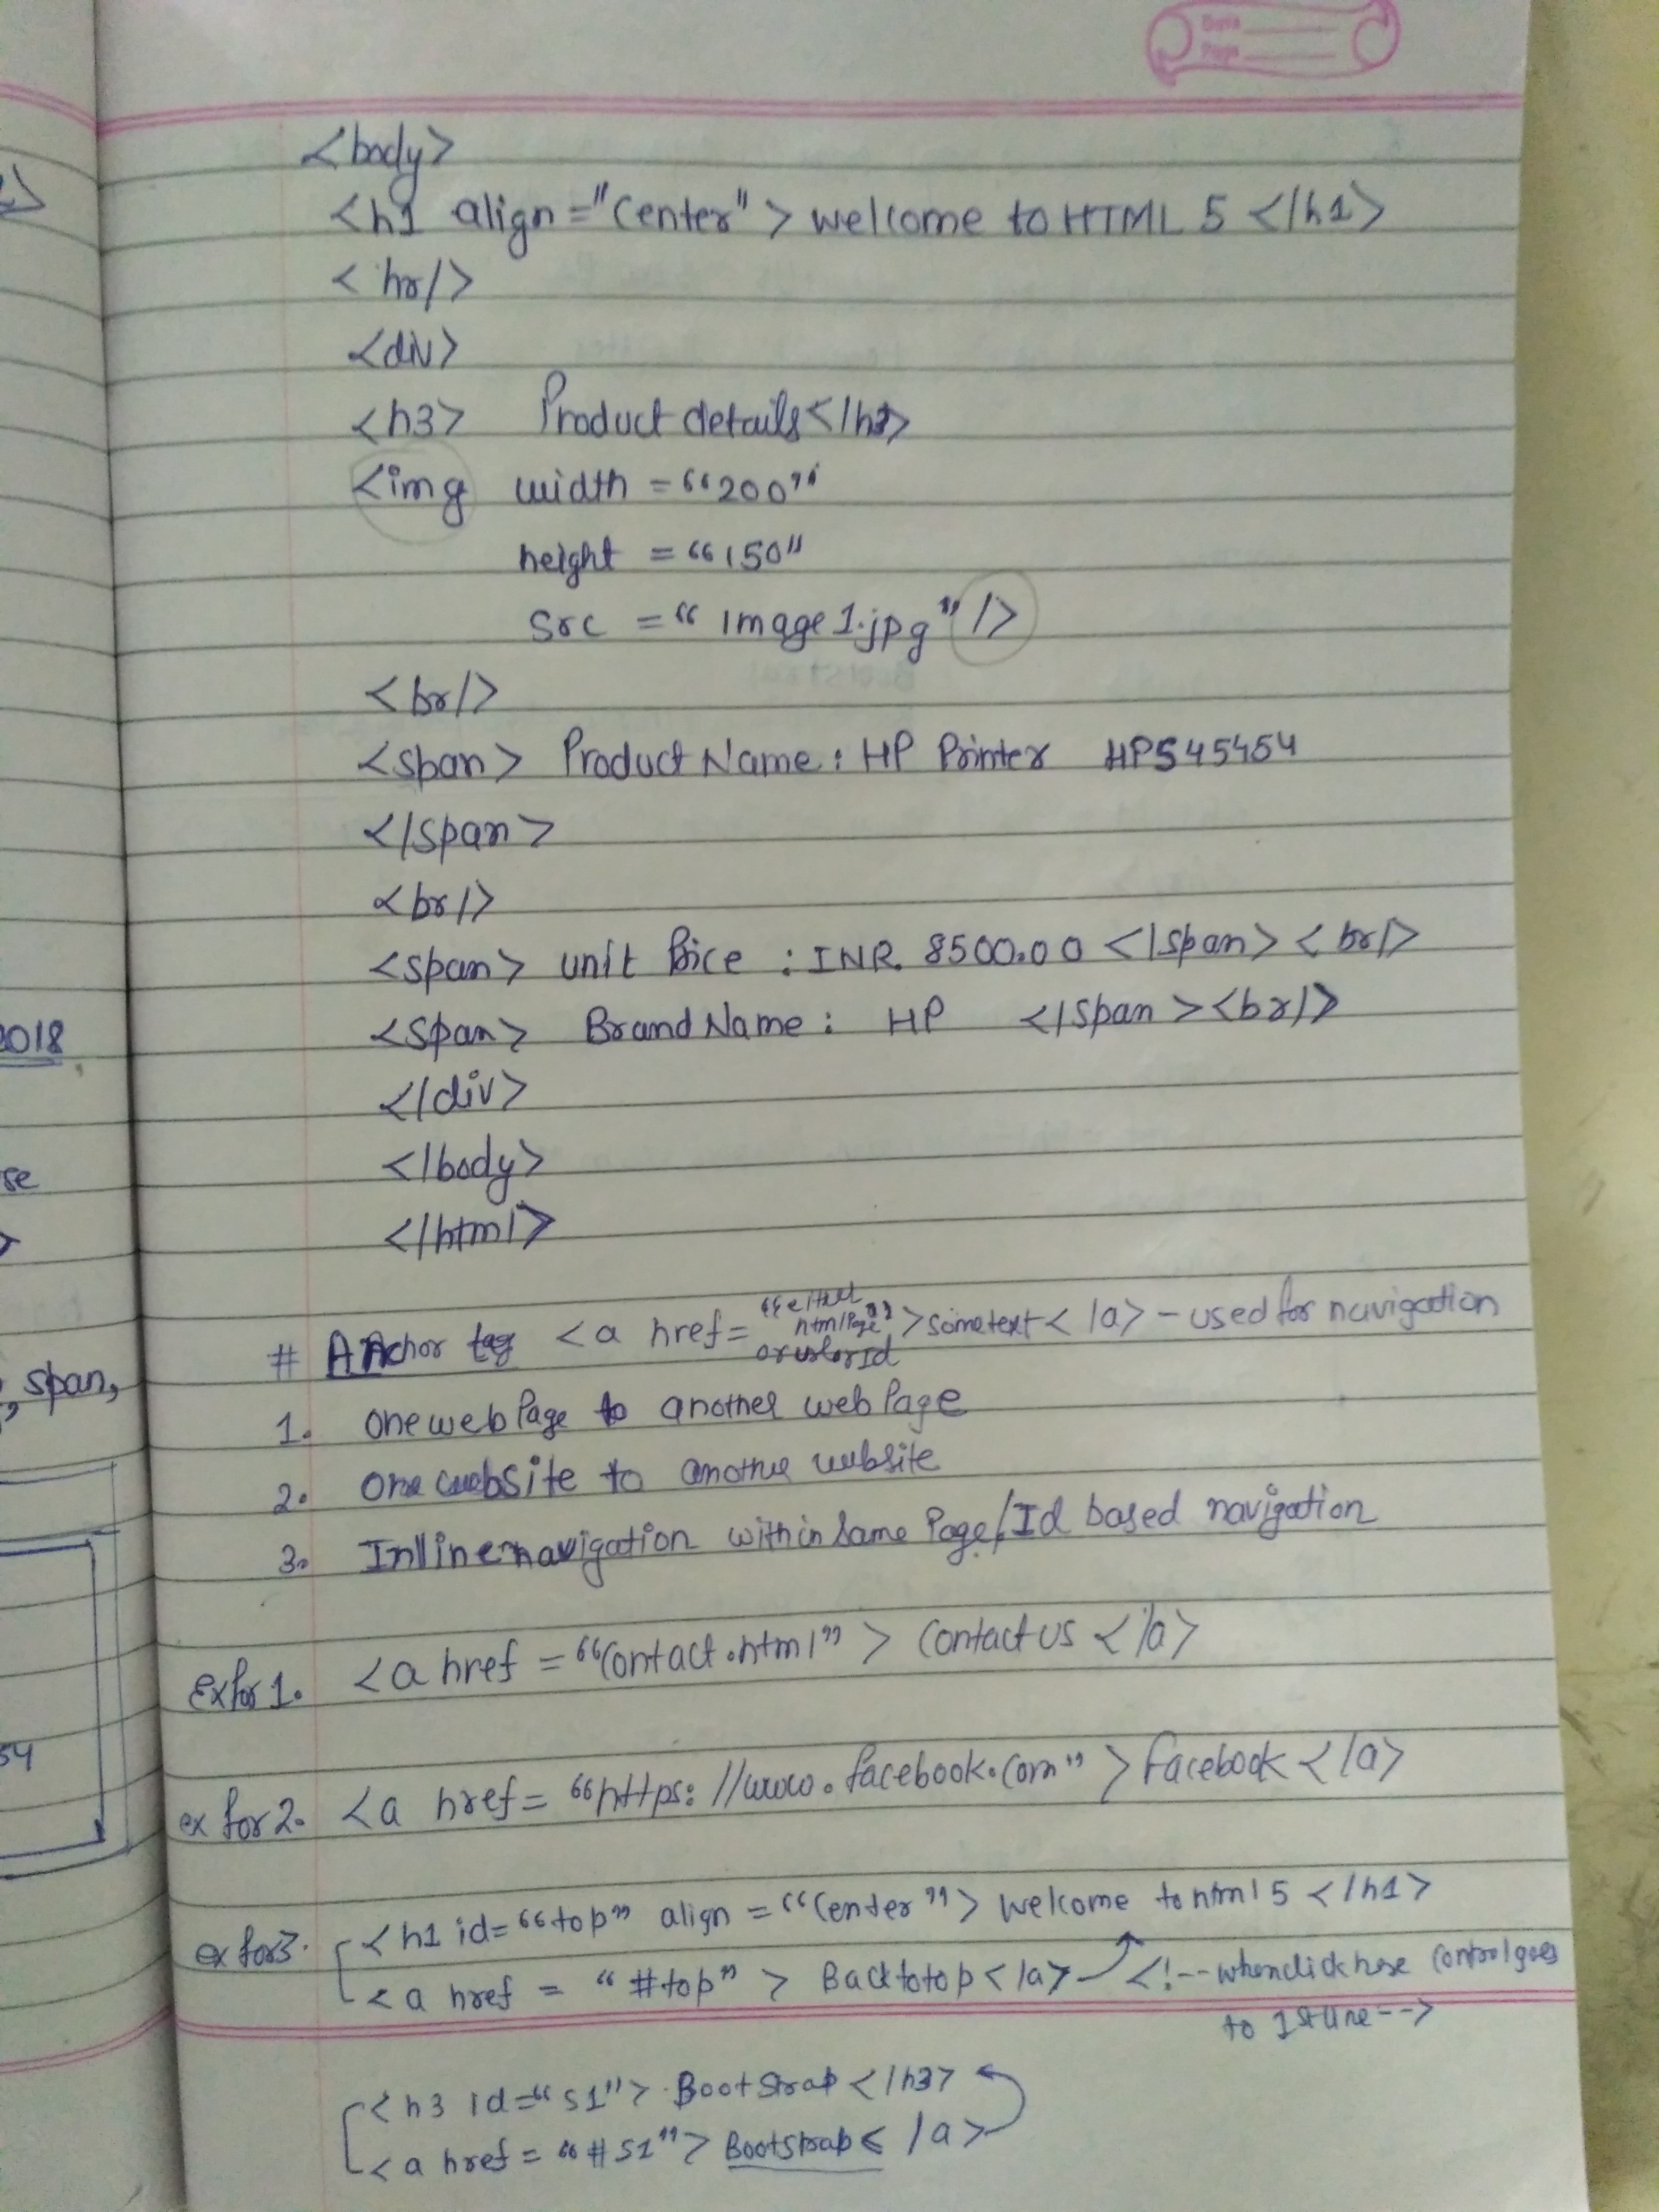 Date
Page
<body>
<h1 align="Center"> welcome to HTML 5 </h1>
<hr/>
<div>
<h3> Product details</h3>
<img width = "200"
height = "150"
src = "Image1.jpg" />
<br/>
<span> Product Name : HP Printer HP545454
</span>
<br/>
<span> unit Price : INR. 8500.00 </span> <br/>
<span> Brand Name : HP </span> <br/>
</div>
</body>
</html>
# Anchor tag <a href= "either html Page" or url or Id > sometext < /a> - used for navigation
1. one web Page to another web Page
2. one website to another website
3. Inline navigation within same Page/Id based navigation
Ex for 1. <a href = "Contact.html" > Contact us </a>
ex for 2. <a href = "https://www.facebook.com" > Facebook </a>
ex for 3. <h1 id="top" align = "Center" > welcome to html 5 </h1>
<a href = "#top" > Back to top </a> <!-- when click here Control goes
to 1st line -->
<h3 id="s1"> BootStrap </h3>
<a href = "#s1"> Bootstrap < /a>
2018
se
span,
54